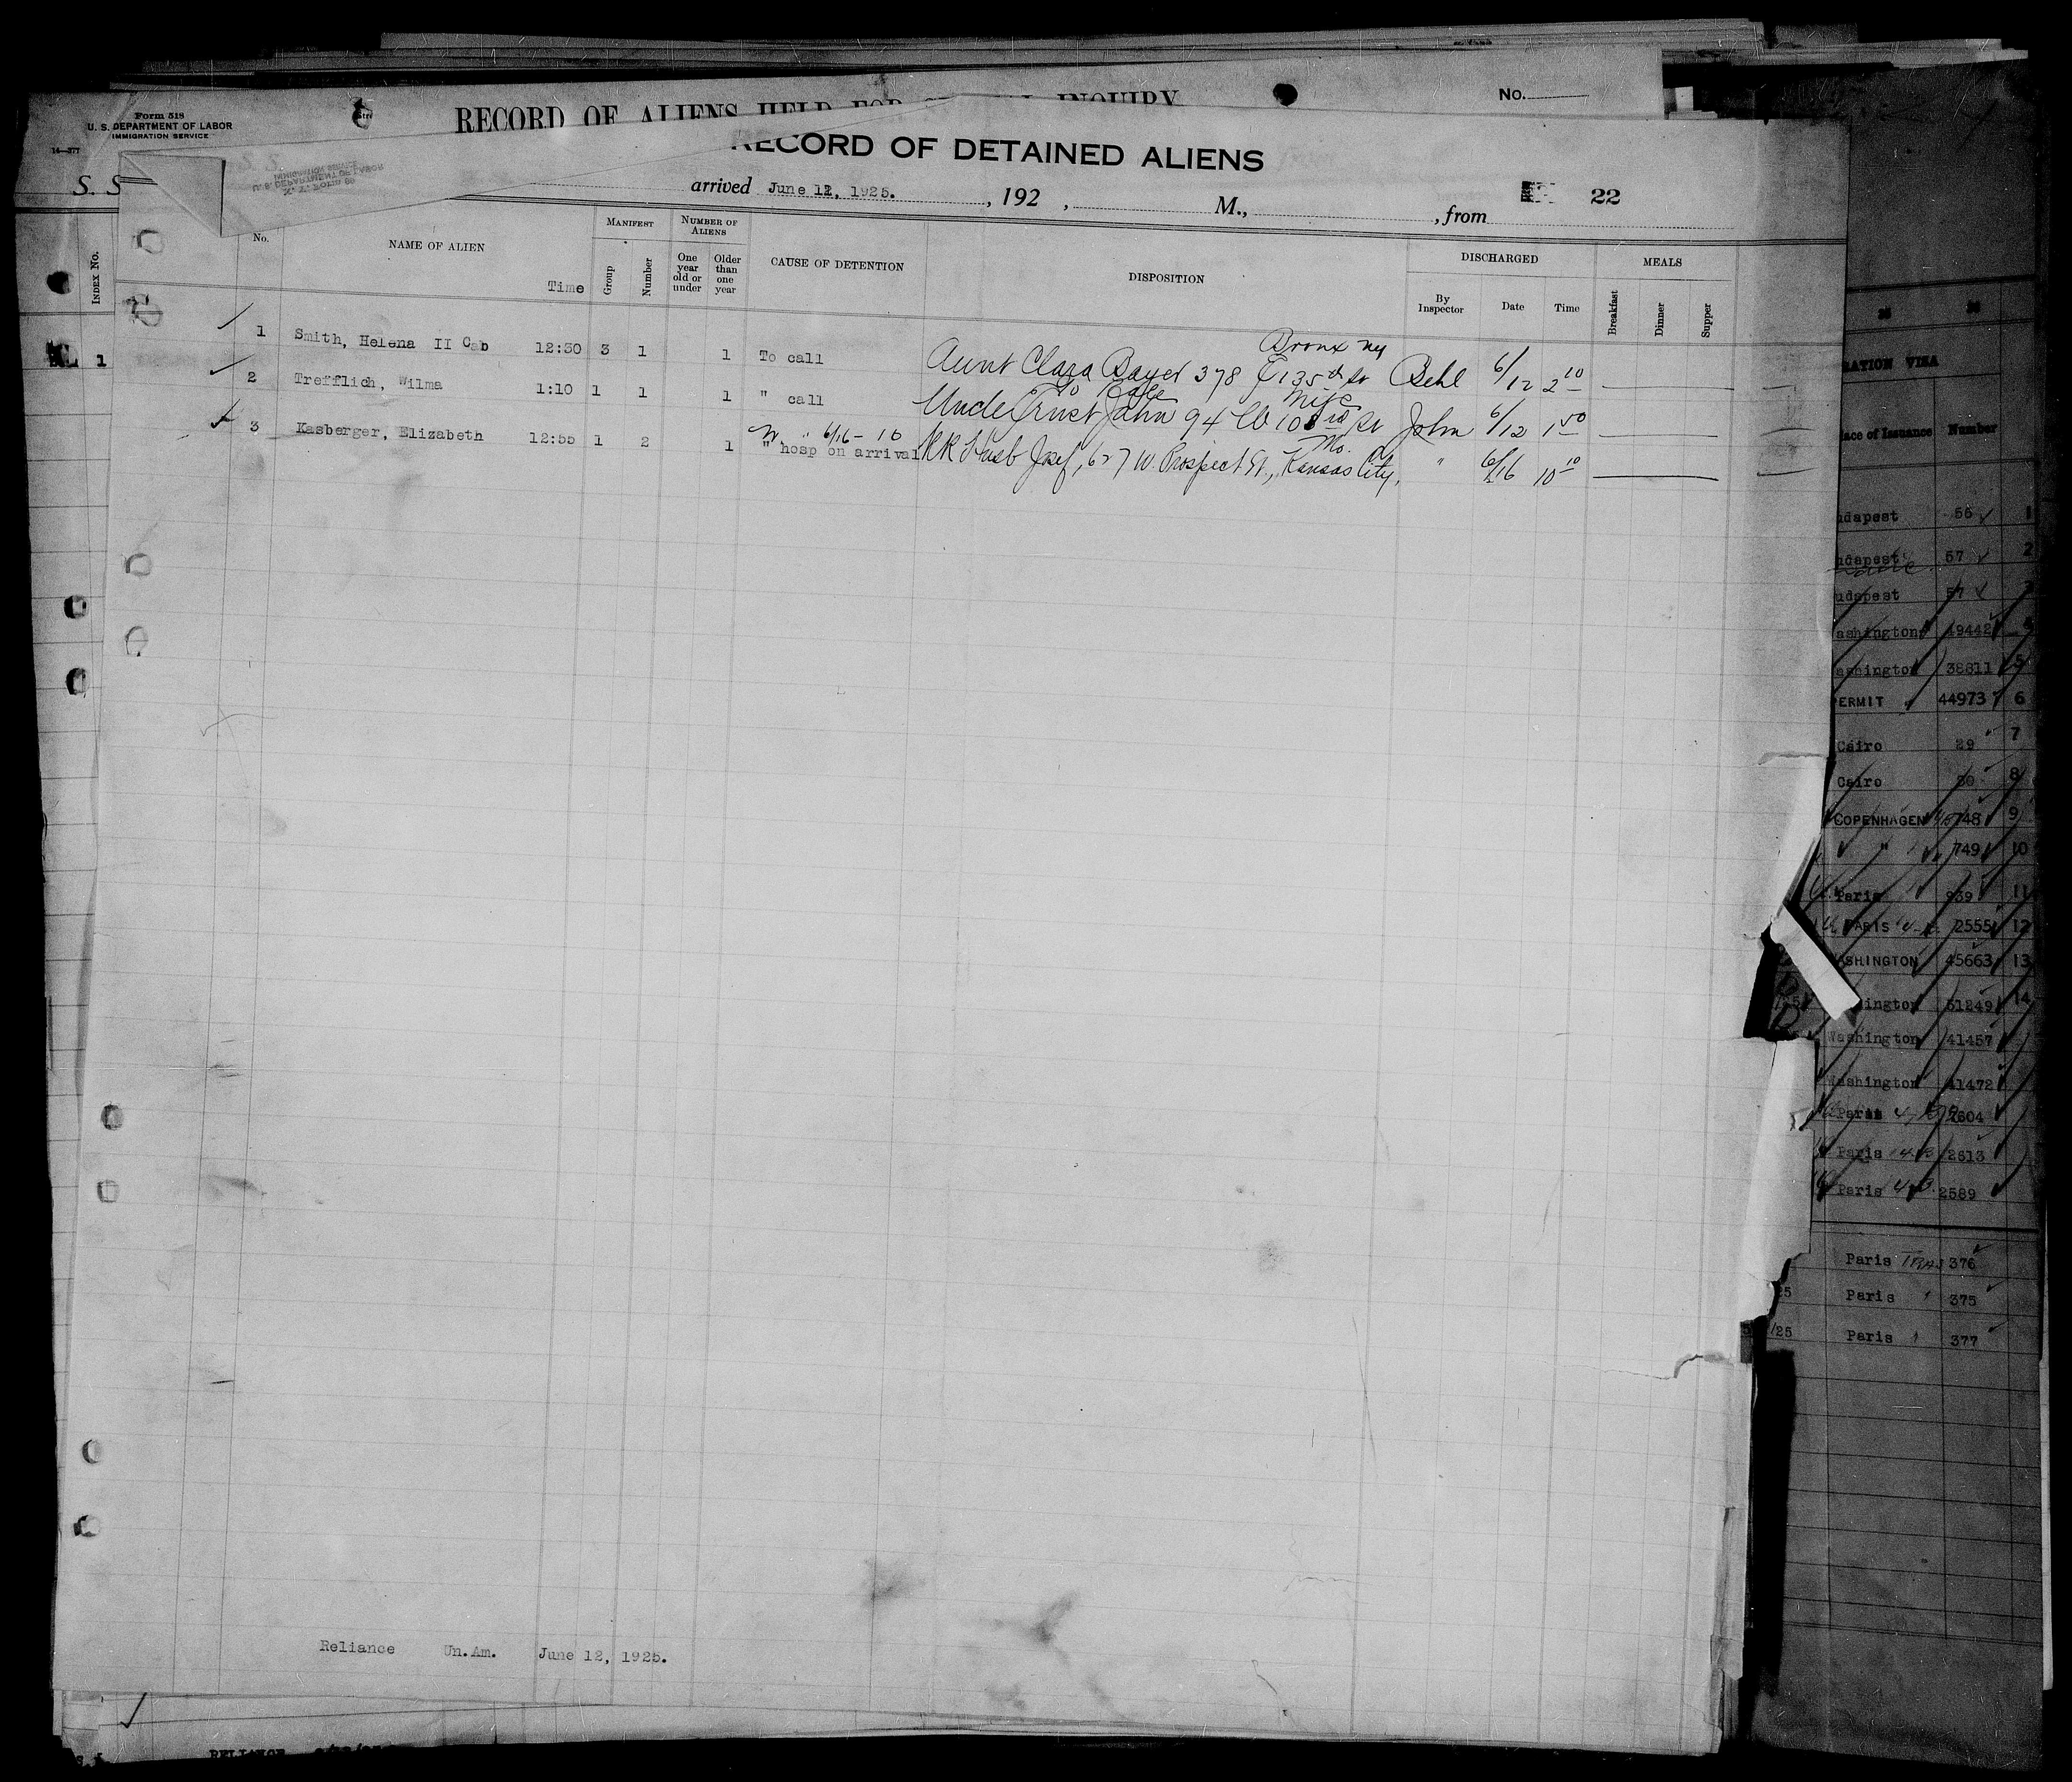 Form 518
U. S. DEPARTMENT OF LABOR
IMMIGRATION SERVICE
14—377
RECORD OF ALIENS HELD FOR INQUIRY
No.
S. S
RECORD OF DETAINED ALIENS
arrived June 12, 1925. , 192 , M., , from
22
INDEX No.
No.
NAME OF ALIEN
Time
MANIFEST
Group
Number
NUMBER OF ALIENS
One year old or under
Older than one year
CAUSE OF DETENTION
DISPOSITION
DISCHARGED
By Inspector
Date
Time
MEALS
Breakfast
Dinner
Supper
Bronx NY
1 Smith, Helena II Cab 12:30 3 1 1 To call Aunt Clara Bayer 378 E 135th St Behl 6/12 2 10
2 Trefflich, Wilma 1:10 1 1 1 " call Uncle Ernst Jahn 94 W 103rd St John 6/12 1 50
6/16 - 10 Mo.
3 Kasberger, Elizabeth 12:55 1 2 1 " hosp on arrival RR Husb Josef, 627 W. Prospect St., Kansas City, " 6/16 10 10
Reliance Un.Am. June 12, 1925.
1
RATION VISA
ace of Issuance Number
udapest 56 1
udapest 57 2
udapest 57 3
ashington 49442
ashington 38811 5
PERMIT 44973 6
Cairo 29 7
Cairo 30 8
COPENHAGEN 748 9
" 749 10
Paris 939 11
PARIS 2555 12
ASHINGTON 45663 13
ington 51249 14
Washington 41457
Washington 41472
Paris 2604
Paris 2613
Paris 2589
Paris 376
25 Paris 375
/25 Paris 377